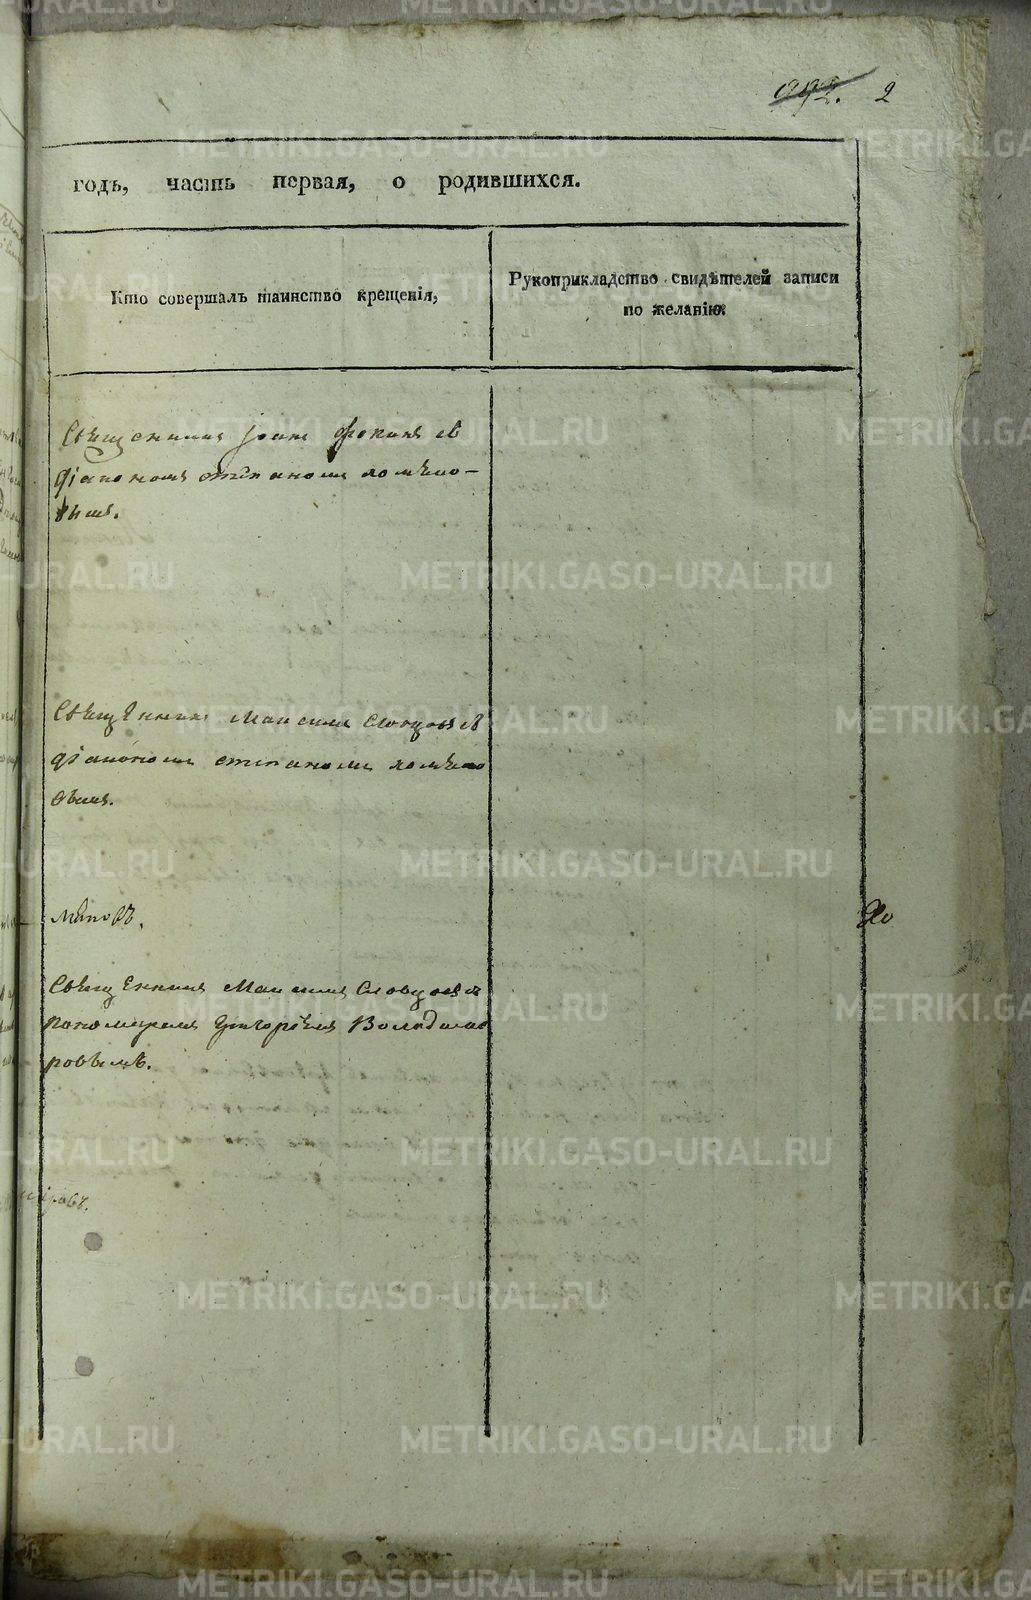 2
годъ, часть первая, о родившихся.
Кто совершалъ таинство крещенія,
Рукоприкладство свидѣтелей записи
по желанію.
Священникъ Іоаннъ съ
діакономъ Стефаномъ Хомяко-
вымъ.
Священникъ Максимъ Словцовъ съ
діакономъ Стефаномъ Хомяко
овымъ.
Священникъ Максимъ Словцовъ съ
пономаремъ Григоріемъ
ровымъ.
METRIKI.GASO-URAL.RU